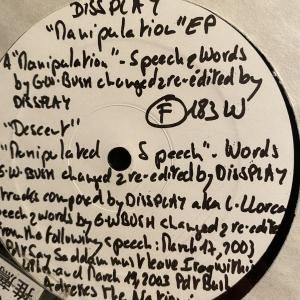 DISSPLAY
"Manipulation" EP
A "Manipulation" - Speech & Words
by G.W. BUSH changed & re-edited by
DISSPLAY
F 183 W
"Descent"
"Manipulated Speech" - Words
G.W. BUSH changed & re-edited by DISSPLAY
tracks composed by DISSPLAY aka L. Llorca
speech & words by G.W BUSH changed & re-edited
from the following speech: March 17, 2003
Pdt Say Saddam must leave Iraq within
and March 19, 2003 Pdt Bush
Adresses The Nation